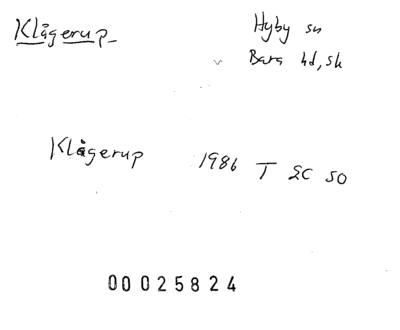 Klågerup
Hyby sn
Bara hd, sk
Klågerup 1986 T SC SO
00025824